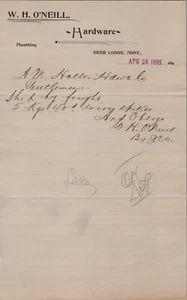 W. H. O'NEILL,
Hardware
Plumbing
DEER LODGE, MONT., APR 26 1895 189
A. M. Holter Hdwe Co
Gentlemen
Ship by freight
5 Kgs 40d wire spikes
And Oblige
W. H. O'Neill
By